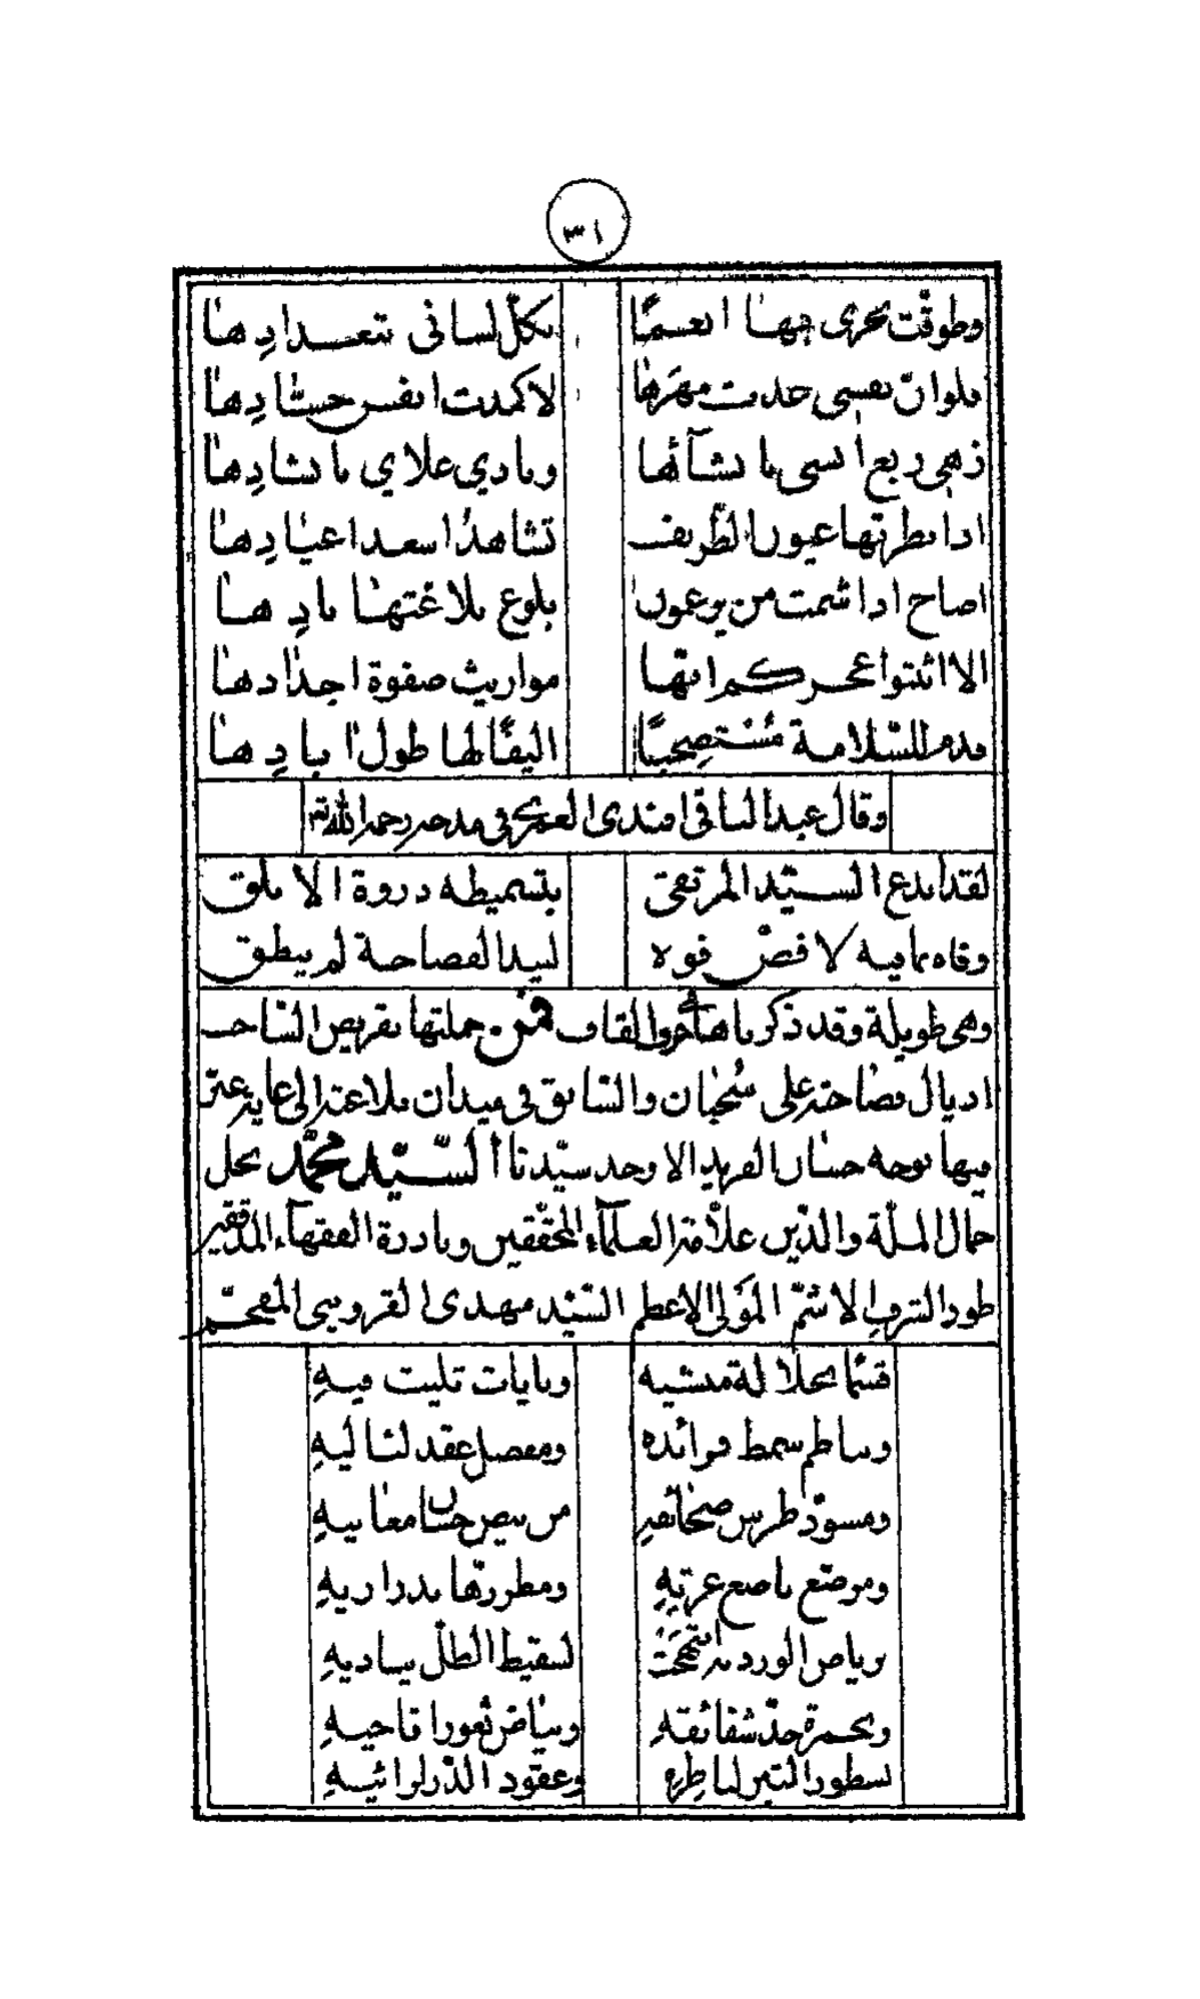 ٣١
وطوقت نحري بها انعما بكل لساني تعدادها
فلو ان نفسي مهرها لاكمدت انفس حسادها
زهى ربع انسي بانشآئها ونادي علاي بانشادها
اذا نظرتها عيون الظريف تشاهد اسعد اعيادها
اصاح اذا شمت من يدعون بلوغ بلاغتها نادها
الا اثبتوا عجزكم انها مواريث صفوة اجدادها
فدم للسلامة مستصحبا اليفا لها طول ابادها
وقال عبد الباقي افندي العمري في مدحه رحمه الله
لقد ابدع السيد المرتقى بتسميطه ذروة الابلق
وفاه بما فيه لا فض فوه لبيد الفصاحة لم ينطق
وهي طويلة وقد ذكرناها في حرف القاف فمن جملتها تقريض الساحب
اذيال فصاحته على سحبان والسابق في ميدان بلاغته الى غاية
فيها بوجه حسان الفريد الاوحد سيدنا السيد محمد نجل
جمال الملة والدين علامة العلماء المحققين ونادرة الفقهاء المدققين
طود الشرف الاشم المولى الاعظم السيد مهدي القزويني المفخم
قسما بجلالة منشيه وبايات تليت فيه
وبناظم سمط فرائده ومفصل عقد لئاليه
ومسود طرس صحائفه من بيض حسان معانيه
ومرصع ناصع غرته ومطرزها بدراريه
برياض الورد لسقيط الطل بناديه
وبحمرة خد شقائقه وبياض ثغور اقاحيه
بسطور التبر لناظره وعقود الدر لرائيه